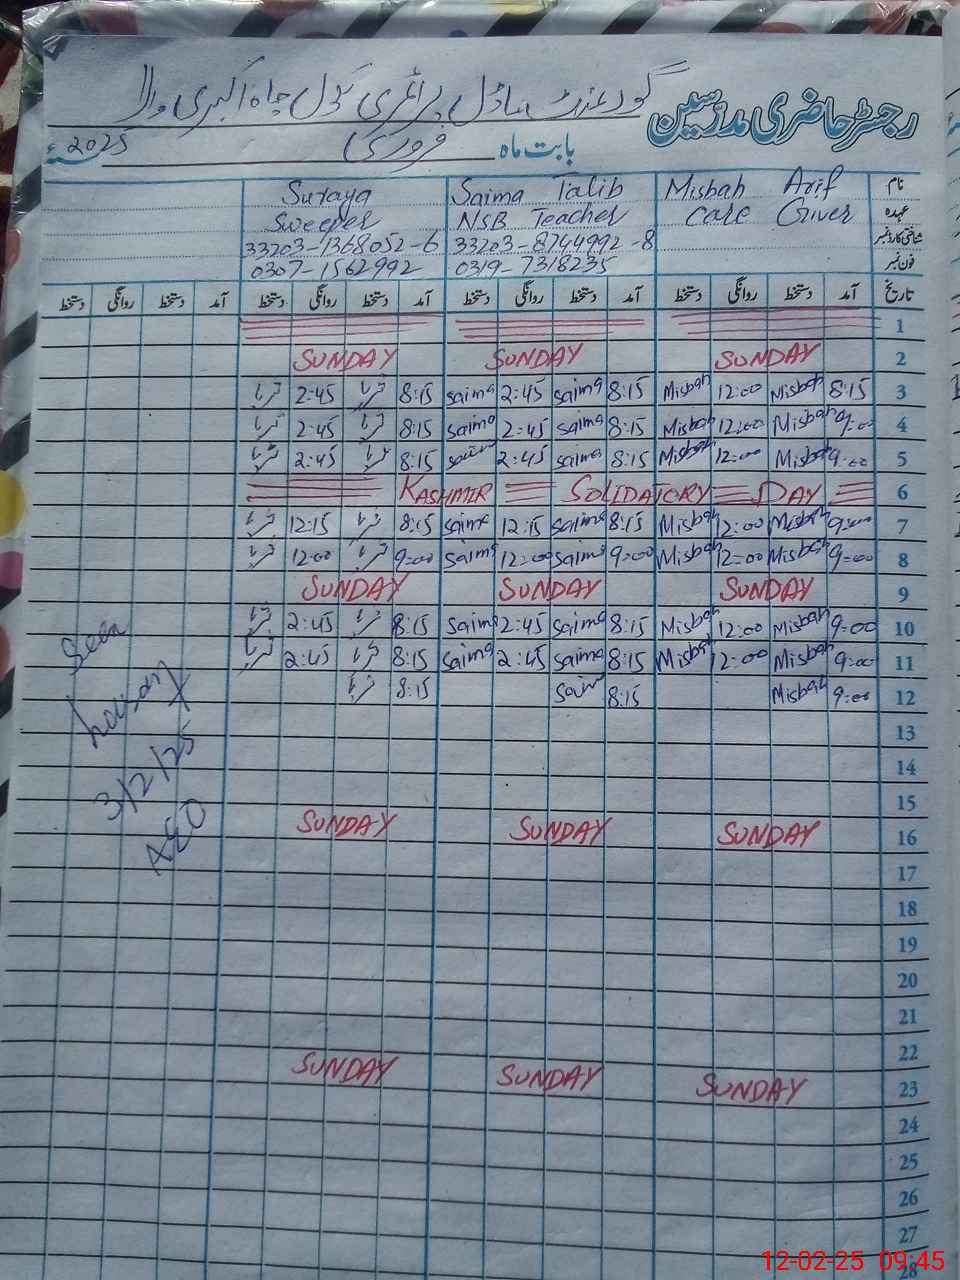 رجسٹر حاضری مدرسین گورنمنٹ ماڈل پرائمری سکول چاہ اکبری والا
بابت ماہ فروری 2025ء
نام Misbah Arif Saima Talib Suraya
عہدہ Care Giver NSB Teacher Sweeper
شناختی کارڈ نمبر 33203-8744992-8 33203-1368052-6
فون نمبر 0319-7318235 0307-1562992
تاریخ آمد دستخط روانگی دستخط آمد دستخط روانگی دستخط آمد دستخط روانگی دستخط آمد دستخط روانگی دستخط
1
SUNDAY SUNDAY SUNDAY 2
2:45 8:15 Saima 2:45 Saima 8:15 Misbah 12:00 Misbah 8:15 3
2:45 8:15 Saima 2:45 Saima 8:15 Misbah 12:00 Misbah 9:00 4
2:45 8:15 Saima 2:45 Saima 8:15 Misbah 12:00 Misbah 9:00 5
KASHMIR SOLIDATORY DAY 6
12:15 8:15 Saima 12:15 Saima 8:15 Misbah 12:00 Misbah 9:00 7
12:00 9:00 Saima 12:00 Saima 9:00 Misbah 12:00 Misbah 9:00 8
SUNDAY SUNDAY SUNDAY 9
2:45 8:15 Saima 2:45 Saima 8:15 Misbah 12:00 Misbah 9:00 10
2:45 8:15 Saima 2:45 Saima 8:15 Misbah 12:00 Misbah 9:00 11
8:15 Saima 8:15 Misbah 9:00 12
13
14
15
SUNDAY SUNDAY SUNDAY 16
17
18
19
20
21
22
SUNDAY SUNDAY SUNDAY 23
24
25
26
27
28
Seen
3/2/25
AEO
12-02-25 09:45